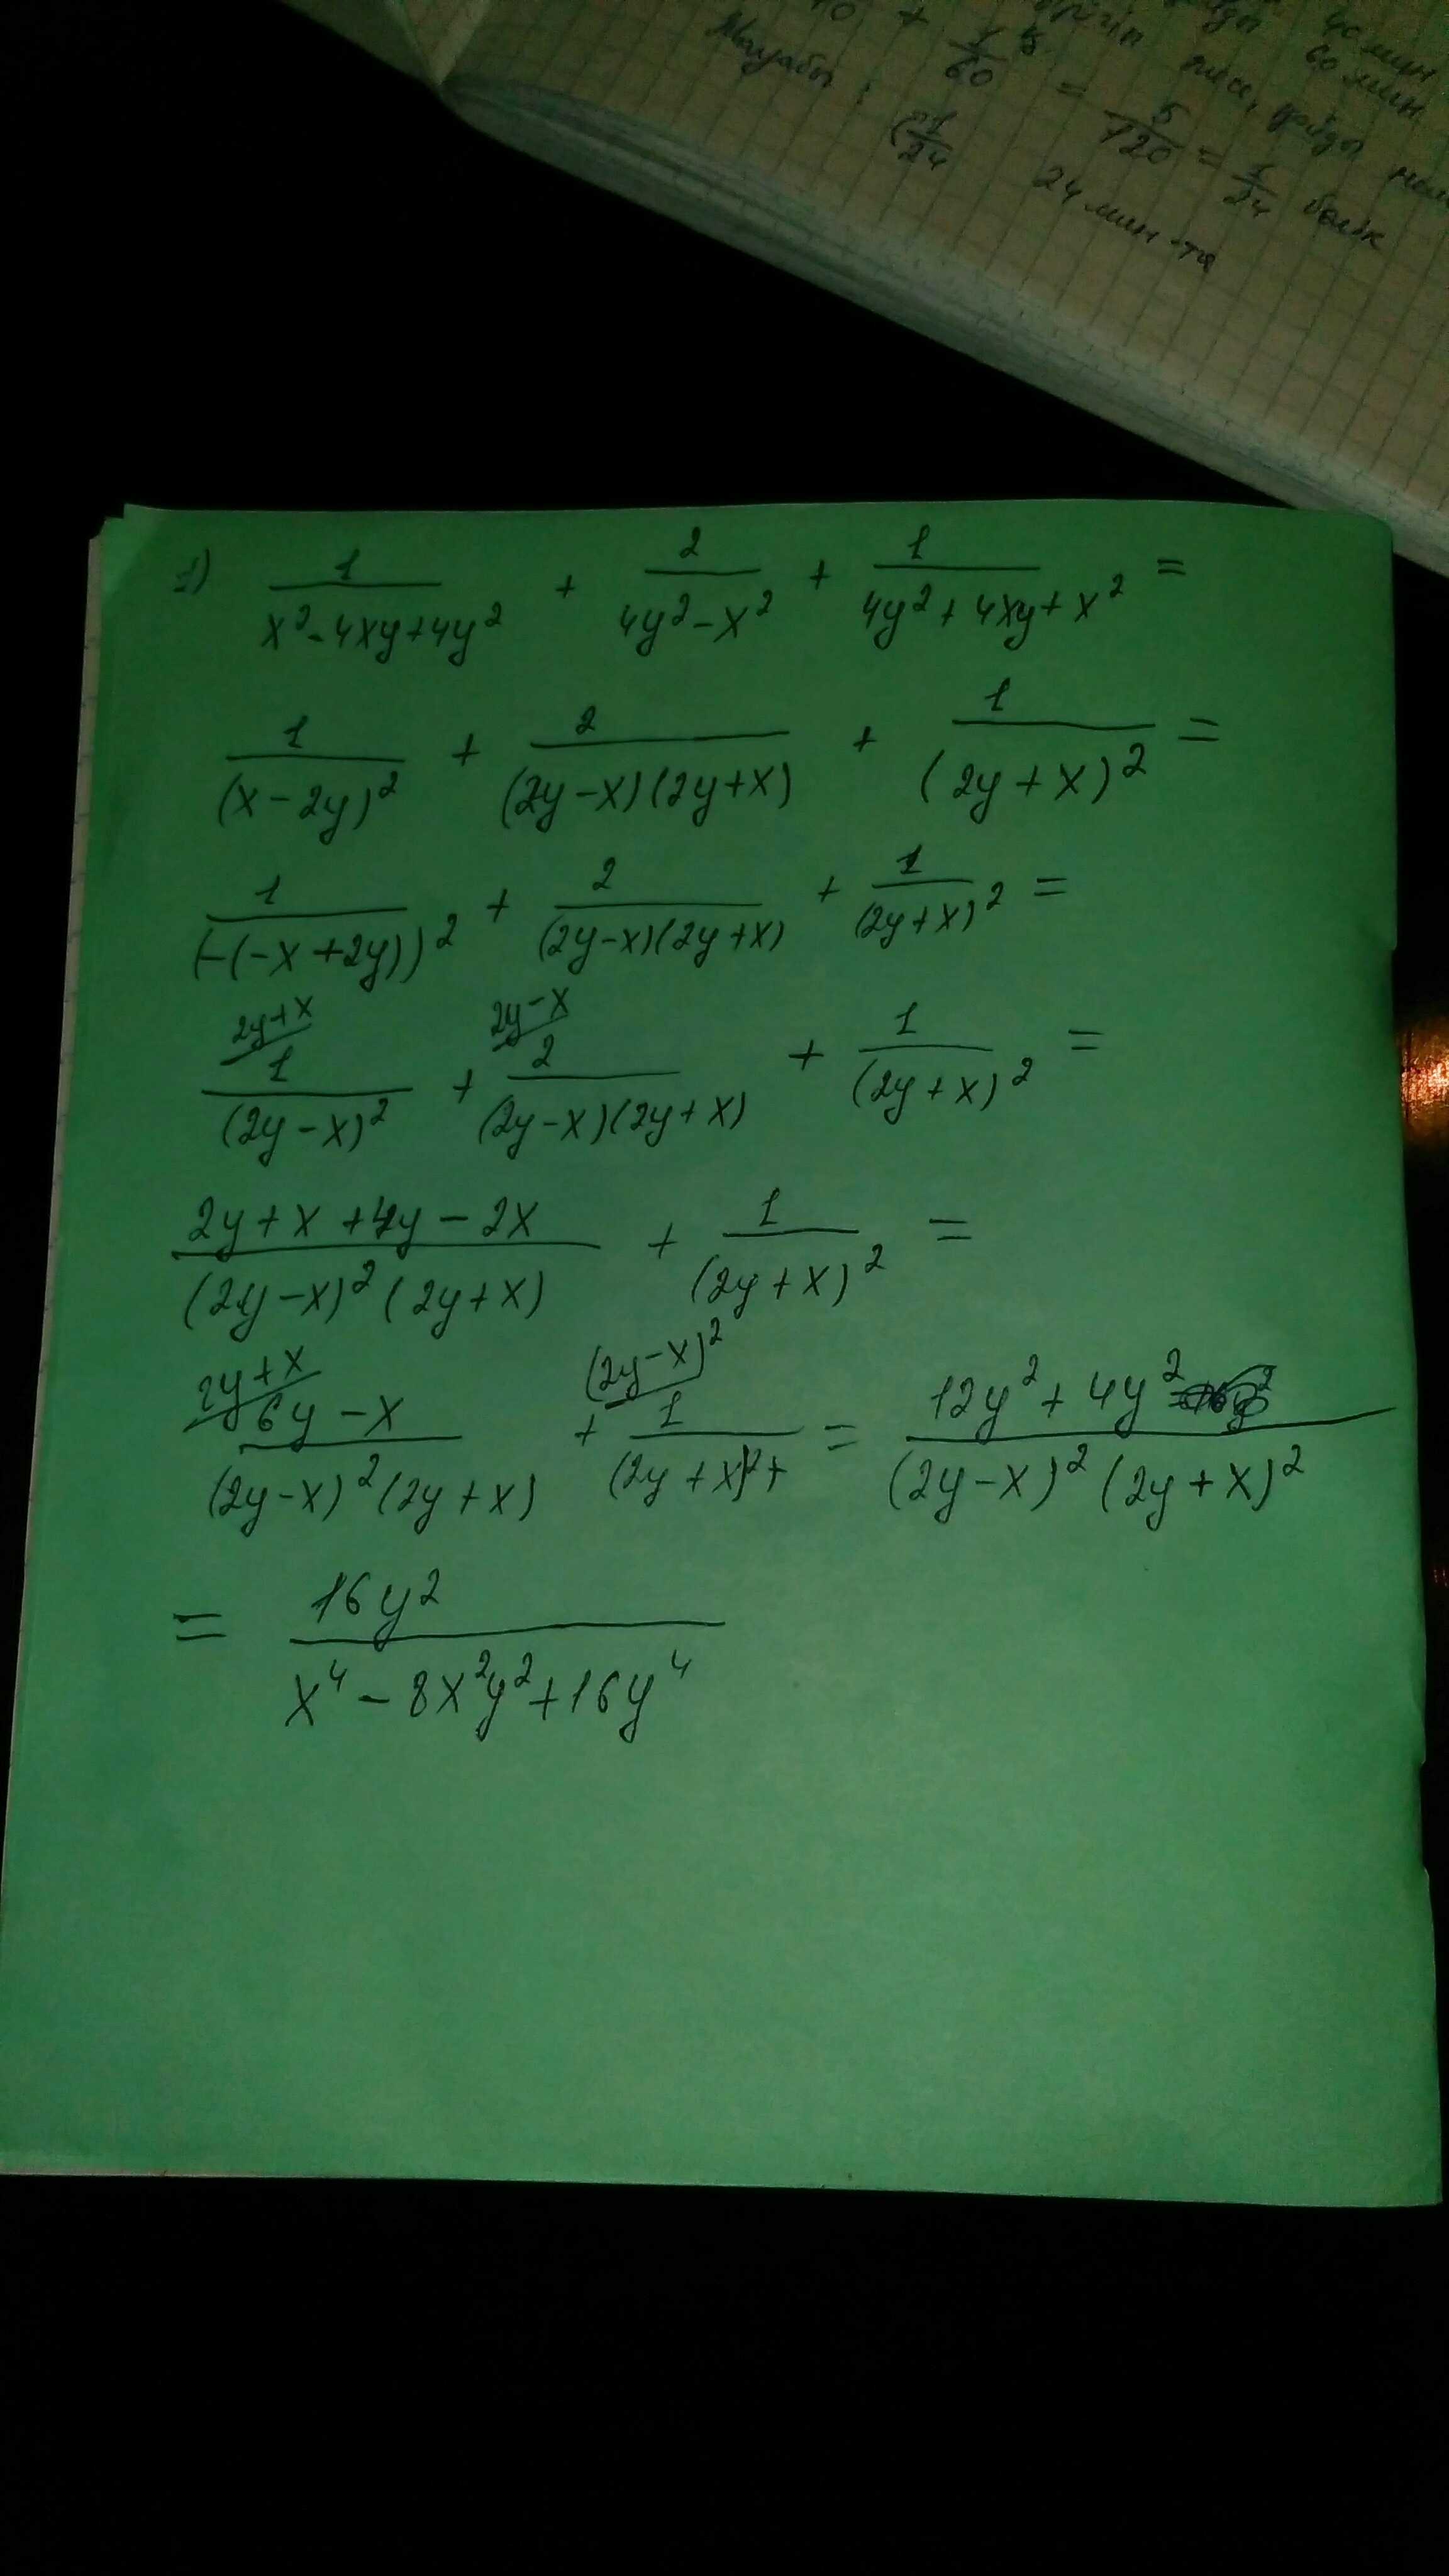 40 мин
60 мин
10 + 1/60 = 5/120 = 1/24 бөлік
Жауабы: (1/24 24 мин-та
1) 1/(x²-4xy+4y²) + 2/(4y²-x²) + 1/(4y²+4xy+x²) =
1/(x-2y)² + 2/((2y-x)(2y+x)) + 1/(2y+x)² =
1/(-(-x+2y))² + 2/((2y-x)(2y+x)) + 1/(2y+x)² =
2y+x 2y-x
1/(2y-x)² + 2/((2y-x)(2y+x)) + 1/(2y+x)² =
(2y+x+4y-2x)/((2y-x)²(2y+x)) + 1/(2y+x)² =
2y+x (2y-x)²
(6y-x)/((2y-x)²(2y+x)) + 1/(2y+x)² = (12y²+4y²)/((2y-x)²(2y+x)²)
= 16y²/(x⁴-8x²y²+16y⁴)